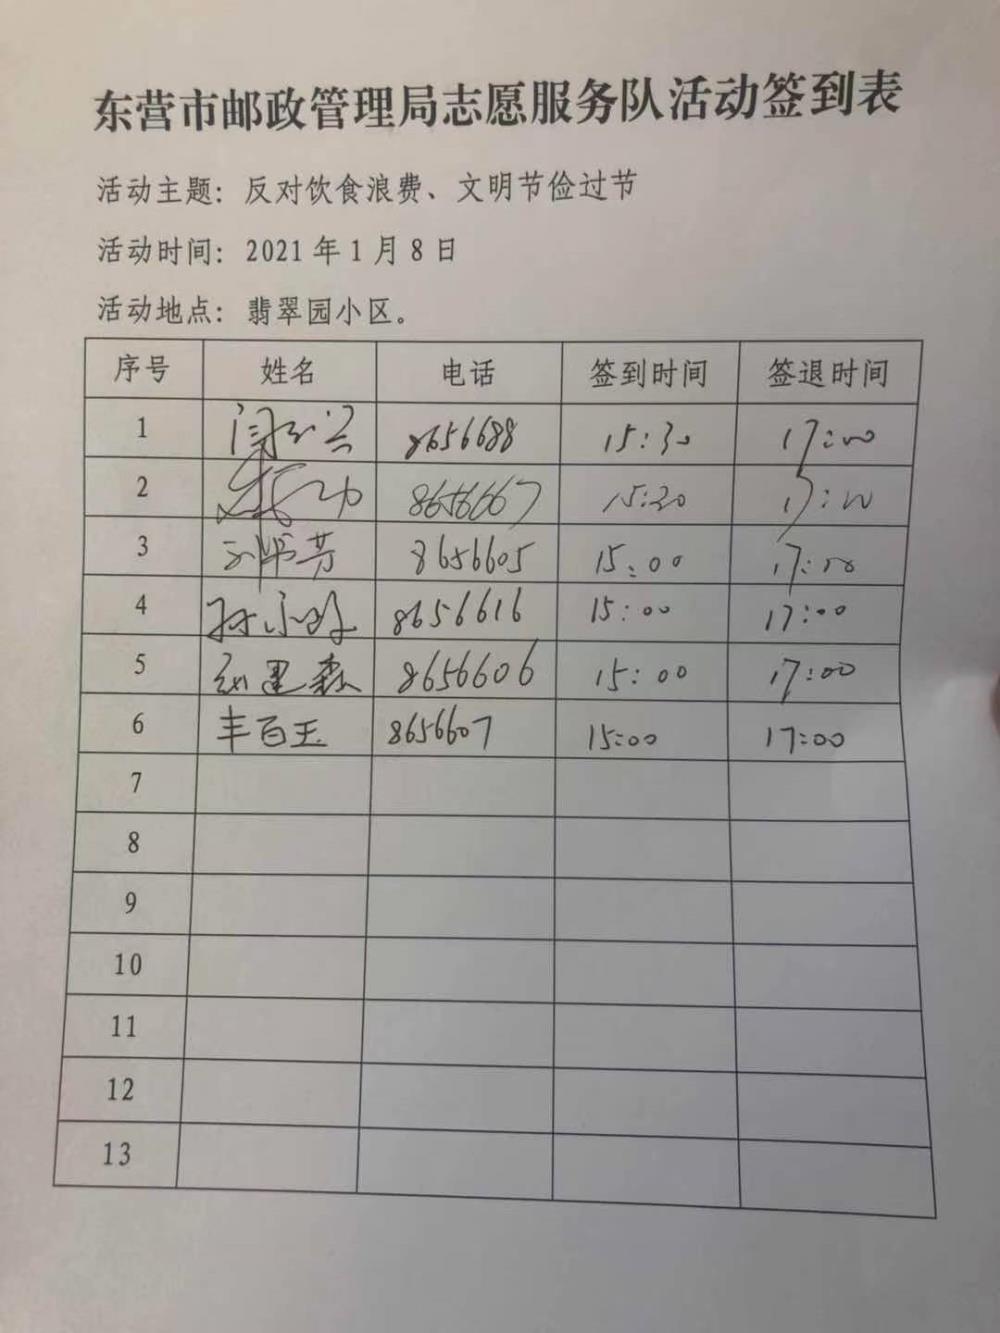 东营市邮政管理局志愿服务队活动签到表
活动主题：反对饮食浪费、文明节俭过节
活动时间：2021年1月8日
活动地点：翡翠园小区。
序号 姓名 电话 签到时间 签退时间
1 8656688 15:30 17:00
2 8656667 15:30 17:00
3 8656605 15:00 17:00
4 8656616 15:00 17:00
5 8656606 15:00 17:00
6 丰百玉 8656607 15:00 17:00
7
8
9
10
11
12
13